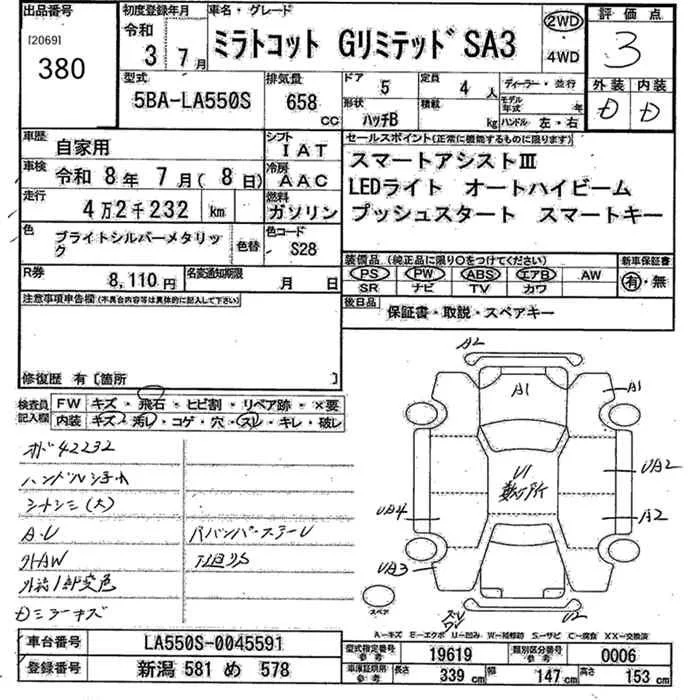 出品番号
[2069]
380
初度登録年月
令和
3 年 7 月
車名・グレード
ミラトコット Gリミテッド SA3
2WD
4WD
評価点
3
外装 内装
D D
型式
5BA-LA550S
排気量
658 CC
ドア
5
定員
4 人
形状
ハッチB
積載
kg
ディーラー・並行
モデル年式 年
ハンドル 左・右
車歴
自家用
シフト
IAT
車検
令和 8年 7月( 8日)
冷房
AAC
走行
4万2千232 km
燃料
ガソリン
色
ブライトシルバーメタリック
色替
色コード
S28
R券
8,110円
名変通知期限
月 日
セールスポイント(正常に機能するものに限ります)
スマートアシストIII
LEDライト オートハイビーム
プッシュスタート スマートキー
装備品 (純正品に限り〇をつけてください)
新車保証書
PS PW ABS エアB AW
SR ナビ TV カワ
有・無
後日品
保証書・取説・スペアキー
注意事項申告欄(不具合内容等は具体的に記入して下さい)
修復歴 有〔箇所 〕
検査員記入欄
FW キズ・飛石・ヒビ割・リペア跡・×要
内装 キズ・汚レ・コゲ・穴・スレ・キレ・破レ
オド42232
シートシミ(大)
外AW
外装1部変色
Dミラーキズ
A2
A1
A1
U1
数ヶ所
UA2
UA4
A2
UA3
U2
スペア
A-キズ E-エクボ U-凹み W-補修跡 S-サビ C-腐食 XX-交換済
車台番号
LA550S-0045591
登録番号
新潟 581 め 578
型式指定番号 参考
19619
類別区分番号 参考
0006
車庫証明用 参考
長さ 339 cm
幅 147 cm
高さ 153 cm